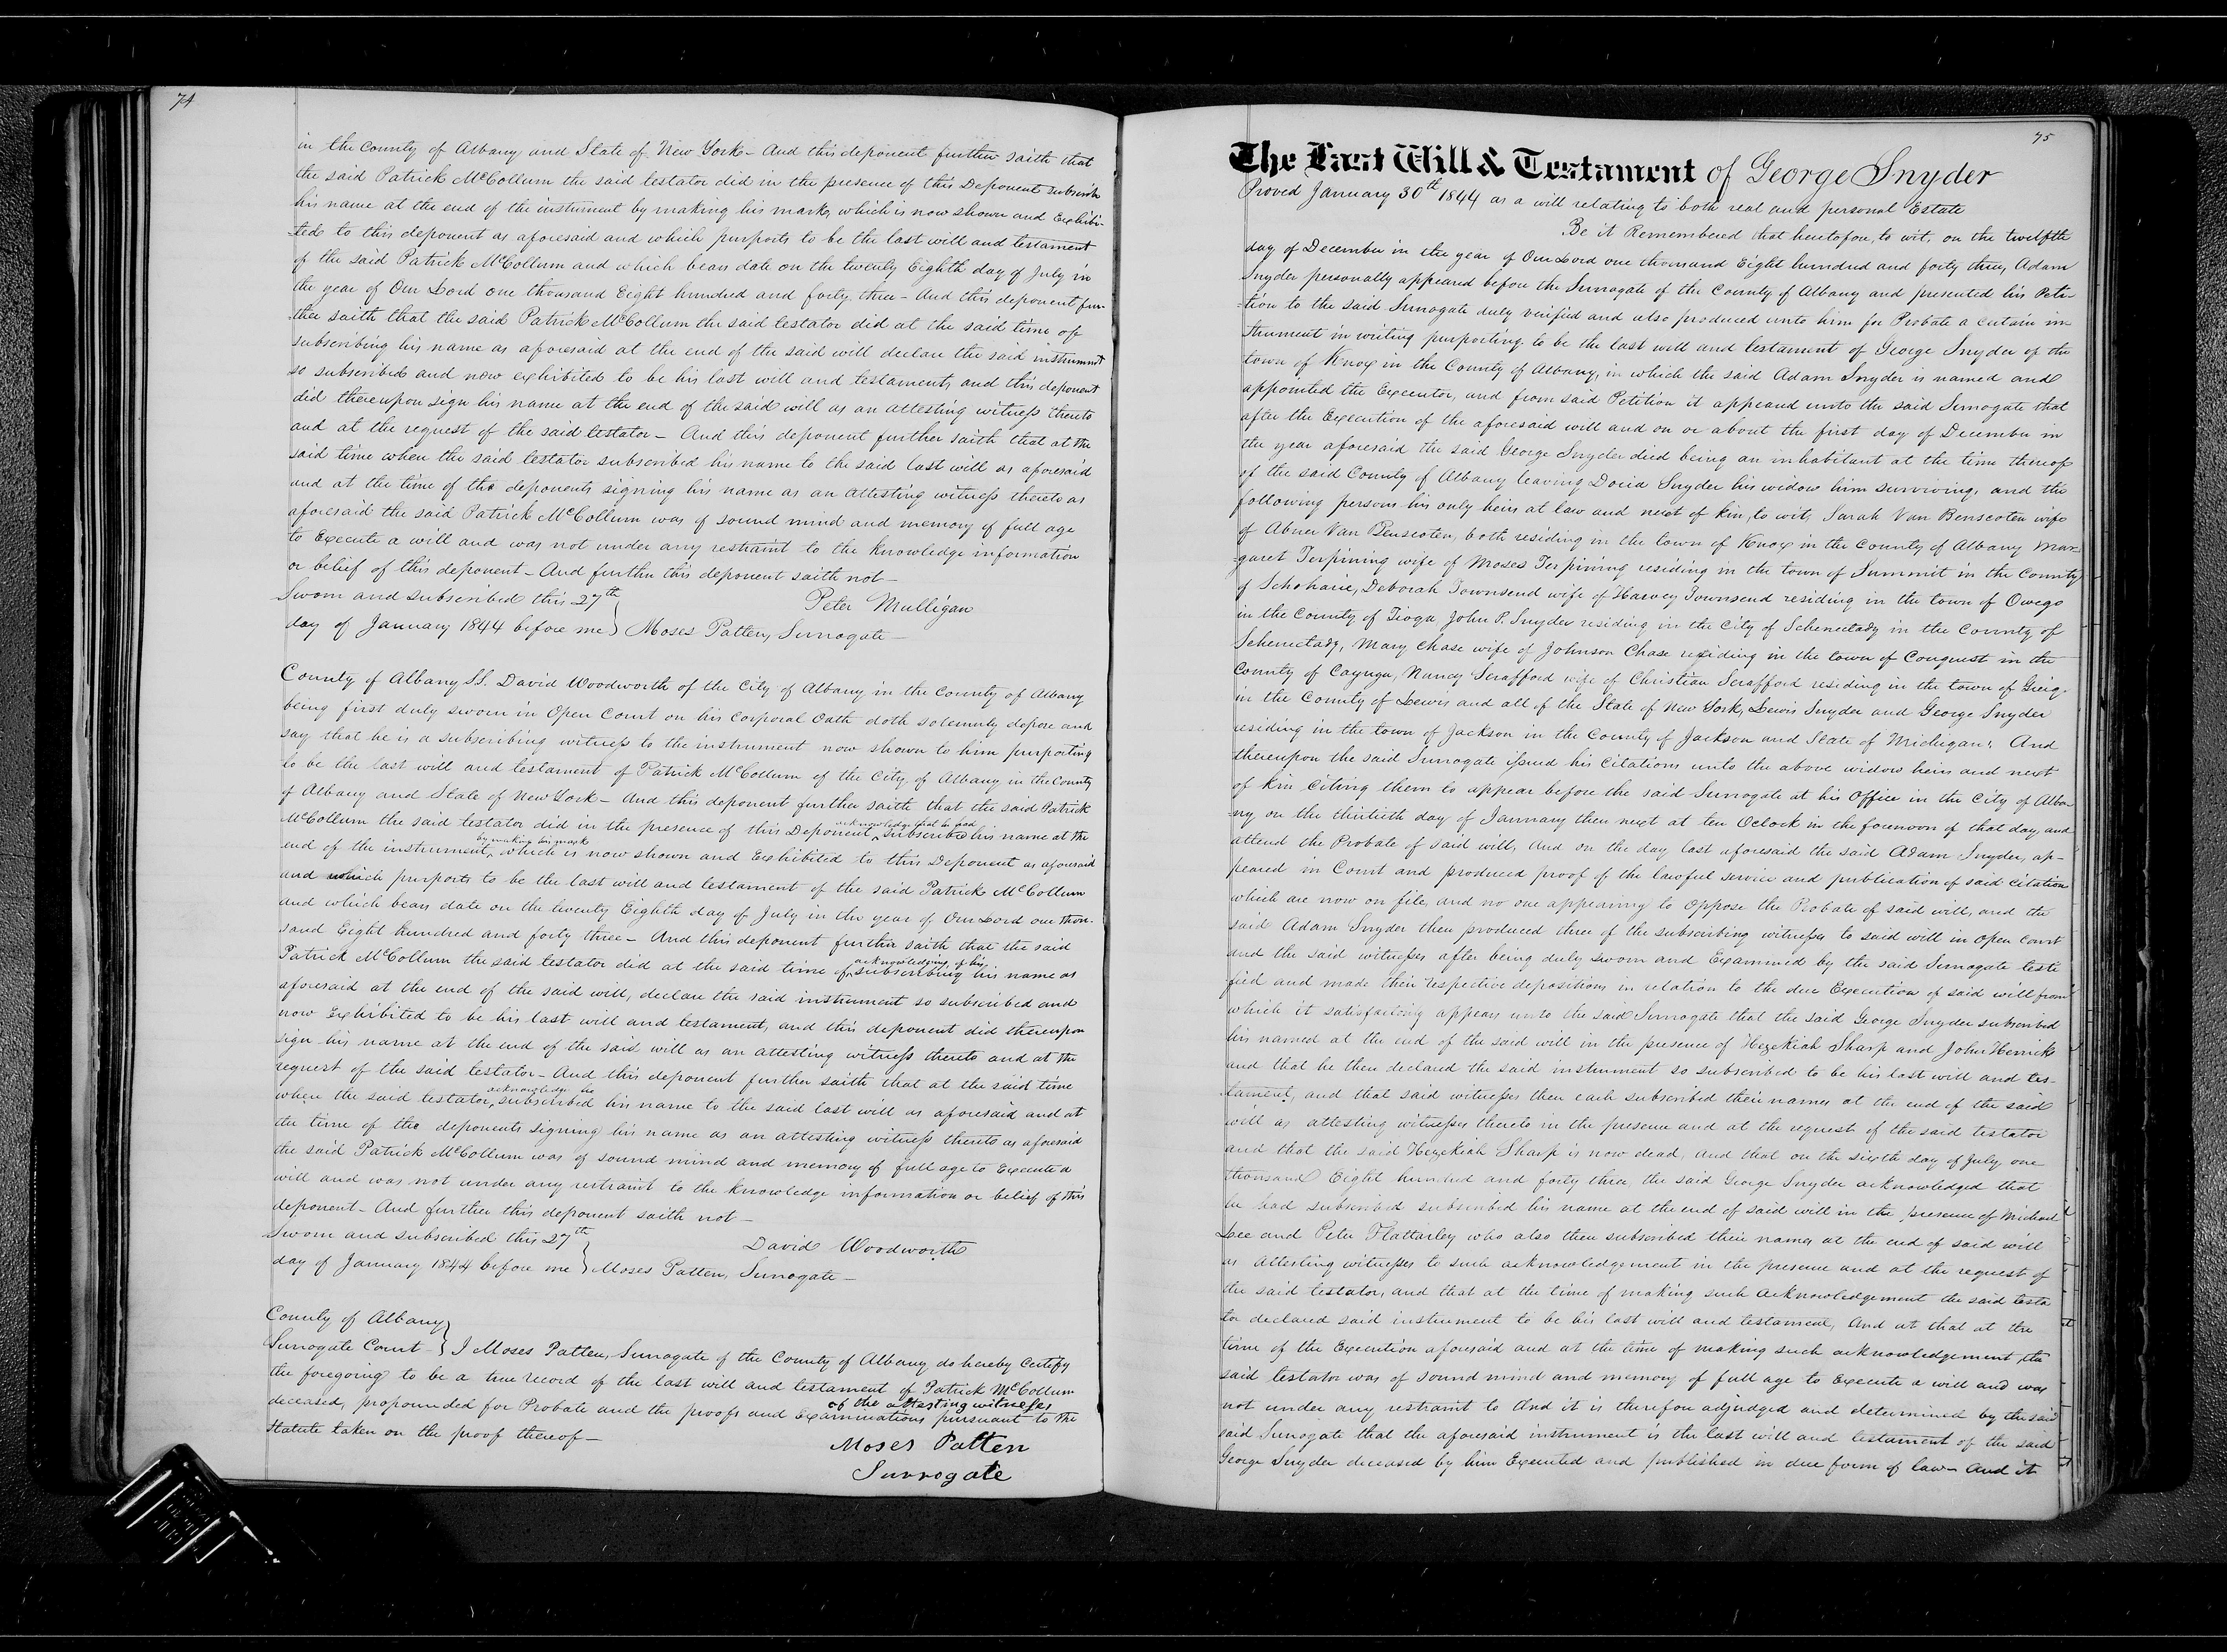 74
in the County of Albany and State of New York - And this deponent further saith that
the said Patrick McCollum the said testator did in the presence of this Deponent subscribe
his name at the end of the instrument by making his mark, which is now shown and Exhibi-
-ted to this deponent as aforesaid and which purports to be the last will and testament
of the said Patrick McCollum and which bears date on the twenty Eighth day of July in
the year of Our Lord one thousand Eight hundred and forty three - And this deponent fur-
ther saith that the said Patrick McCollum the said testator did at the said time of
subscribing his name as aforesaid at the end of the said will declare the said instrument
so subscribed and now exhibited to be his last will and testament, and this deponent
did thereupon sign his name at the end of the said will as an attesting witness thereto
and at the request of the said testator - And this deponent further saith that at the
said time when the said testator subscribed his name to the said last will as aforesaid
and at the time of the deponents signing his name as an attesting witness thereto as
aforesaid the said Patrick McCollum was of sound mind and memory of full age
to Execute a will and was not under any restraint to the knowledge information
or belief of this deponent - And further this deponent saith not -
Sworn and subscribed this 27th } Peter Mulligan
day of January 1844 before me } Moses Patten, Surrogate -
County of Albany S.S. David Woodworth of the City of Albany in the County of Albany
being first duly sworn in Open Court on his Corporal Oath doth solemnly depose and
say that he is a subscribing witness to the instrument now shown to him purporting
to be the last will and testament of Patrick McCollum of the City of Albany in the County
of Albany and State of New York - And this deponent further saith that the said Patrick
acknowledge that he had
McCollum the said testator did in the presence of this Deponent ^ subscribed his name at the
by making his mark
end of the instrument, ^ which is now shown and Exhibited to this Deponent as aforesaid
and which purports to be the last will and testament of the said Patrick McCollum
and which bears date on the twenty Eighth day of July in the year of Our Lord one thou-
sand Eight hundred and forty three - And this deponent further saith that the said
acknowledging of his
Patrick McCollum the said testator did at the said time of ^ subscribing his name as
aforesaid at the end of the said will, declare the said instrument so subscribed and
now Exhibited to be his last will and testament, and this deponent did thereupon
sign his name at the end of the said will as an attesting witness thereto and at the
request of the said testator - And this deponent further saith that at the said time
acknowledge he
when the said testator ^ subscribed his name to the said last will as aforesaid and at
the time of the deponents signing his name as an attesting witness thereto as aforesaid
the said Patrick McCollum was of sound mind and memory of full age to Execute a
will and was not under any restraint to the knowledge information or belief of this
deponent - And further this deponent saith not -
Sworn and subscribed this 27th } David Woodworth
day of January 1844 before me } Moses Patten, Surrogate -
County of Albany }
Surrogate Court - } I Moses Patten, Surrogate of the County of Albany do hereby Certify
the foregoing to be a true record of the last will and testament of Patrick McCollum
of the attesting witnesses
deceased, propounded for Probate and the proofs and Examinations pursuant to the
Statute taken on the proof thereof -
Moses Patten
Surrogate
75
The Last Will & Testament of George Snyder
Proved January 30th 1844 as a will relating to both real and personal Estate
Be it Remembered that heretofore, to wit, on the twelfth
day of December in the year of Our Lord one thousand Eight hundred and forty three, Adam
Snyder personally appeared before the Surrogate of the County of Albany and presented his Peti-
-tion to the said Surrogate duly verified and also produced unto him for Probate a certain in-
-strument in writing purporting to be the last will and testament of George Snyder of the
town of Knox in the County of Albany, in which the said Adam Snyder is named and
appointed the Executor, and from said Petition it appeared unto the said Surrogate that
after the Execution of the aforesaid will and on or about the first day of December in
the year aforesaid the said George Snyder died being an inhabitant at the time thereof
of the said County of Albany leaving Docia Snyder his widow him surviving, and the
following persons his only heirs at law and next of kin, to wit, Sarah Van Benscoten wife
of Abner Van Benscoten, both residing in the town of Knox in the County of Albany Mar-
-garet Terpining wife of Moses Terpining residing in the town of Summit in the County
of Schoharie, Deborah Townsend wife of Harvey Townsend residing in the town of Owego
in the County of Tioga John P. Snyder residing in the City of Schenectady in the County of
Schenectady, Mary Chase wife of Johnson Chase residing in the town of Conquest in the
County of Cayuga, Nancy Serafford wife of Christian Serafford residing in the town of Greig
in the County of Lewis and all of the State of New York, Lewis Snyder and George Snyder
residing in the town of Jackson in the County of Jackson and State of Michigan: And
thereupon the said Surrogate issued his Citations unto the above widow heirs and next
of kin citing them to appear before the said Surrogate at his Office in the City of Alba-
-ny, on the thirtieth day of January then next at ten Oclock in the forenoon of that day, and
attend the Probate of said will, And on the day last aforesaid the said Adam Snyder, ap-
peared in Court and produced proof of the lawful service and publication of said Citation
which are now on file, and no one appearing to oppose the Probate of said will, and the
said Adam Snyder then produced three of the subscribing witnesses to said will in open court
and the said witnesses after being duly sworn and Examined by the said Surrogate testi
fied and made their respective depositions in relation to the due Execution of said will from
which it satisfactorily appears unto the said Surrogate that the said George Snyder subscribed
his named at the end of the said will in the presence of Hezekiah Sharp and John Herrick
and that he then declared the said instrument so subscribed to be his last will and tes-
-tament, and that said witnesses then each subscribed their names at the end of the said
will as attesting witnesses thereto in the presence and at the request of the said testator
and that the said Hezekiah Sharp is now dead, and that on the sixth day of July one
thousand Eight hundred and forty three the said George Snyder acknowledged that
he had subscribed subscribed his name at the end of said will in the presence of Michael
Lee and Peter Flattarley who also then subscribed their names at the end of said will
as Attesting witnesses to such acknowledgement in the presence and at the request of
the said testator, and that at the time of making such acknowledgement the said testa
tor declared said instrument to be his last will and testament, And at that at the
time of the Execution aforesaid and at the time of making such acknowledgement, the
said testator was of sound mind and memory of full age to Execute a will and was
not under any restraint to And it is therefore adjudged and determined by the said
said Surrogate that the aforesaid instrument is the last will and testament of the said
George Snyder deceased by him Executed and published in due form of law - And it